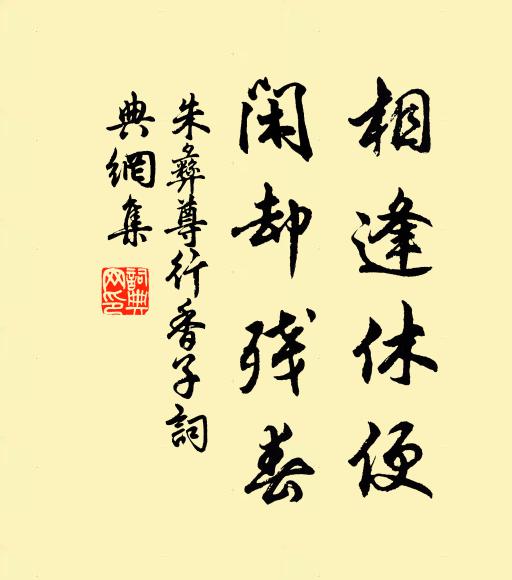 相逢休便
闲却残春
朱彝尊行香子詞
典網集
詞典网印